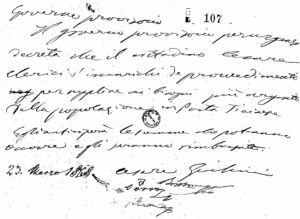 Governo provvisorio
E. 107
Il governo provvisorio per urgenza
decreta che il cittadino Cesare
Clerici s'incarichi di provvedimenti
per supplire ai bisogni più urgenti
della popolazione in Porta Ticinese
le somme che potranno
e gli saranno rimborsate.
23. Marzo 1848